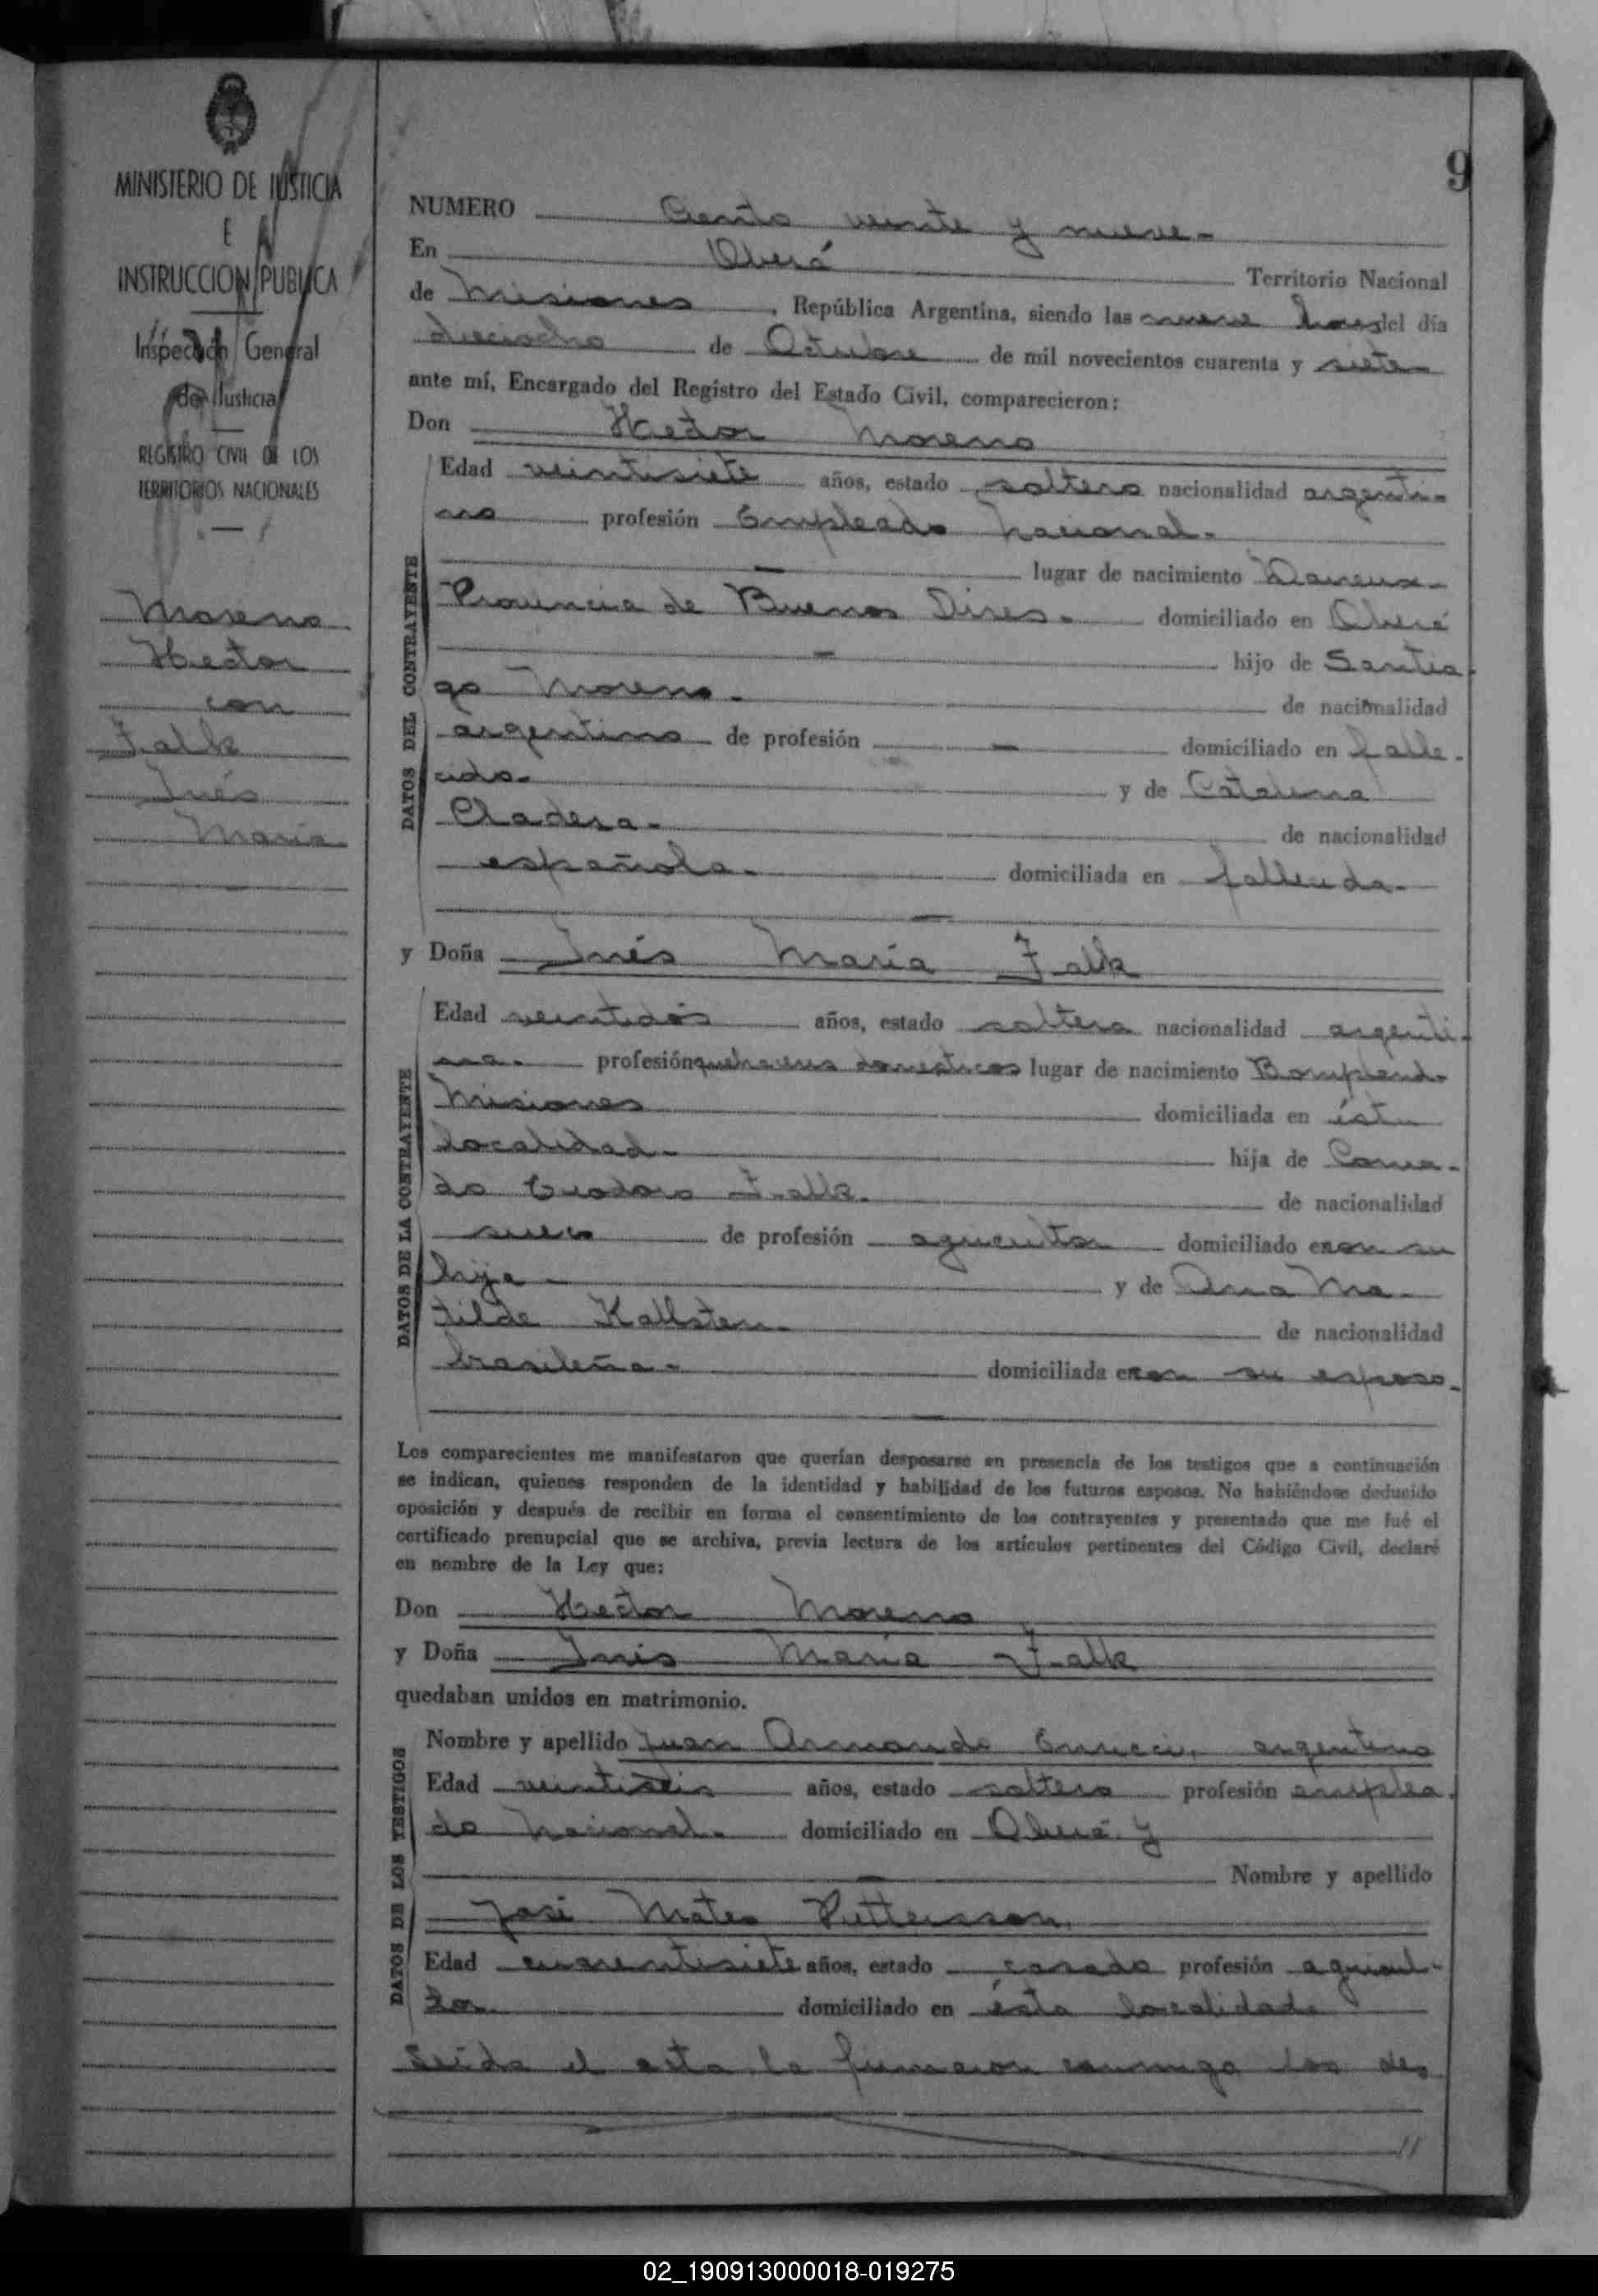 9
MINISTERIO DE JUSTICIA
E
INSTRUCCION PUBLICA
Inspección General
de Justicia
REGISTRO CIVIL DE LOS
TERRITORIOS NACIONALES
Moreno
Hector
con
Falk
Inés
María.
NUMERO Ciento veinte y nueve-
En Oberá Territorio Nacional
de Misiones, República Argentina, siendo las nueve horas del día
dieciocho de Octubre de mil novecientos cuarenta y siete
ante mí, Encargado del Registro del Estado Civil, comparecieron:
Don Hector Moreno
DATOS DEL CONTRAYENTE
Edad veintisiete años, estado soltero nacionalidad argenti-
no profesión Empleado Nacional.
lugar de nacimiento
Provincia de Buenos Aires. domiciliado en Oberá
hijo de Santia-
go Moreno. de nacionalidad
argentino de profesión — domiciliado en falle-
cido. y de Catalina
Cladera. de nacionalidad
española. domiciliada en fallecida.
y Doña Inés María Falk
DATOS DE LA CONTRAYENTE
Edad veintidós años, estado soltera nacionalidad argenti-
na. profesión quehaceres domesticos lugar de nacimiento Bompland-
Misiones domiciliada en ésta
localidad. hija de Conra-
do Teodoro Falk. de nacionalidad
sueco de profesión agricultor domiciliado con su
hija y de Ana Ma-
tilde Kallsten. de nacionalidad
brasileña. domiciliada con su esposo.
Los comparecientes me manifestaron que querían desposarse en presencia de los testigos que a continuación
se indican, quienes responden de la identidad y habilidad de los futuros esposos. No habiéndose deducido
oposición y después de recibir en forma el consentimiento de los contrayentes y presentado que me fué el
certificado prenupcial que se archiva, previa lectura de los artículos pertinentes del Código Civil, declaré
en nombre de la Ley que:
Don Hector Moreno
y Doña Inés María Falk
quedaban unidos en matrimonio.
DATOS DE LOS TESTIGOS
Nombre y apellido Juan Armando argentino
Edad veintiseis años, estado soltero profesión emplea-
do Nacional. domiciliado en Oberá y
Nombre y apellido
José Mateo Puttersson.
Edad cuarentisiete años, estado casado profesión agricul-
tor domiciliado en ésta localidad.
Leída el acta la firmaron conmigo los des
02_190913000018-019275